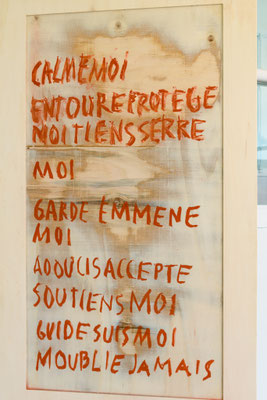 CALMEMOI
ENTOUREPROTEGE
MOITIENSSERRE
MOI
GARDE EMMENE
MOI
ADOUCISACCEPTE
SOUTIENSMOI
GUIDESUISMOI
MOUBLIEJAMAIS